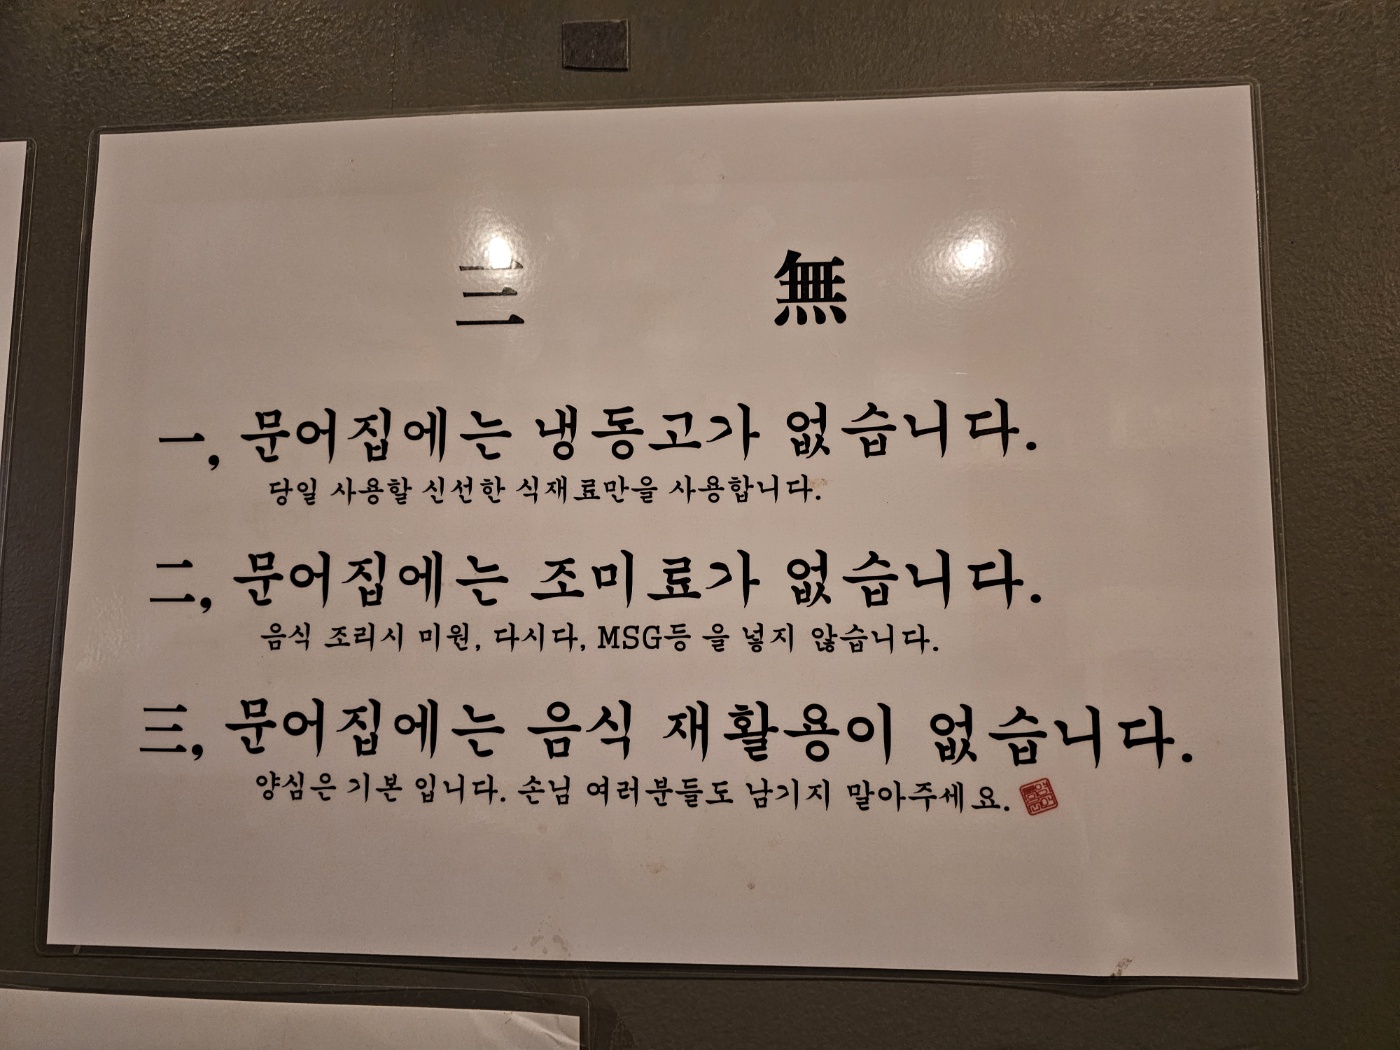 三 無
一, 문어집에는 냉동고가 없습니다.
당일 사용할 신선한 식재료만을 사용합니다.
二, 문어집에는 조미료가 없습니다.
음식 조리시 미원, 다시다, MSG등 을 넣지 않습니다.
三, 문어집에는 음식 재활용이 없습니다.
양심은 기본 입니다. 손님 여러분들도 남기지 말아주세요.